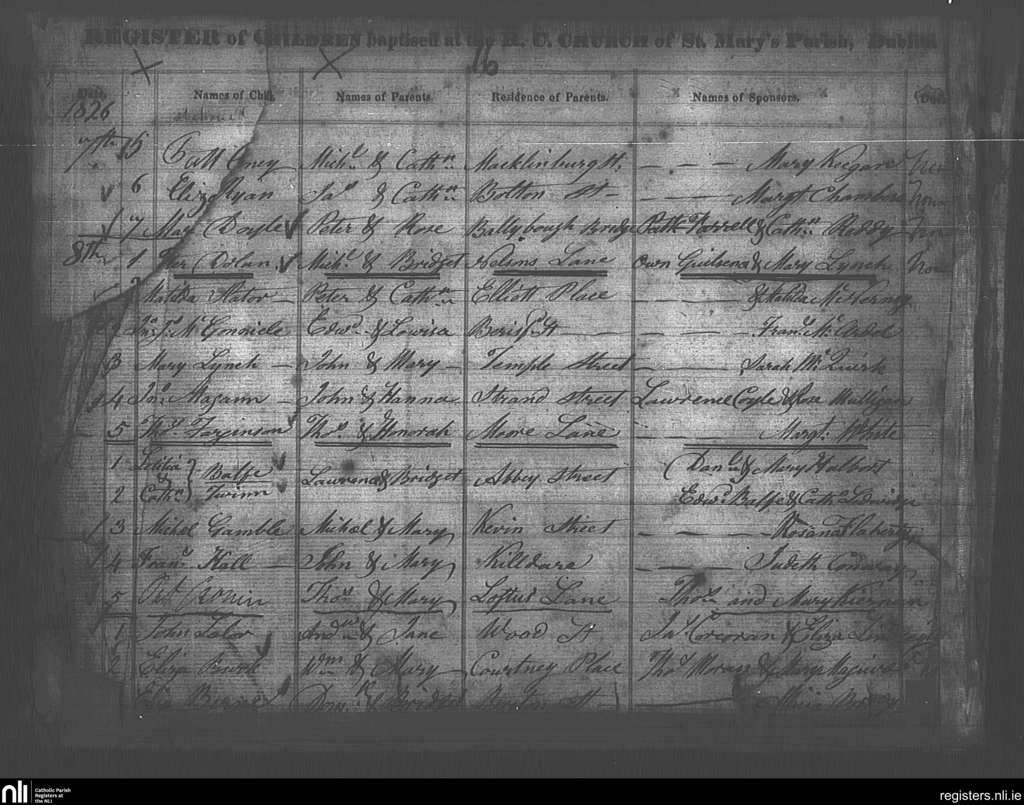 REGISTER of CHILDREN baptised at the R. C. CHURCH of St. Mary's Parish, Dublin
16
Date. Names of Child. Names of Parents. Residence of Parents. Names of Sponsors.
1826
7th 5 Patt Michl & Cathn Macklinburg St, — — — Mary Keegan
6 Eliz Ryan Jas & Cathn Bolton St — — — Margt Chambers
7 Mary Doyle Peter & Rose Ballybough Bridge Patk Farrell & Cathn Reddy
8th 1 Dolan Michl & Bridget Nelins Lane Own & Mary Lynch
Matilda Slator — Peter & Cathn Elliott Place — — — & Matilda McNerney
Edwd & Lowisa St — — — — Frans McArdel
3 Mary Lynch — John & Mary — Temple Street — — — Sarah McQuirk
4 Jno Magann — John & Hanna Strand Street Lawrence Coyle & Rose Mulligan
5 Thos Farginson Thos & Honorah Moore Lane — — — Margt White
1 Letitia } Balfe Lawrence & Bridget Abbey Street Danl & Mary Halbert
2 & Cathn } Twinn Edwd Balfe & Cathn
3 Michel Gamble Michel & Mary Kevin Street — — — Rosana Flaherty
4 Frans Hall — John & Mary Killdara — — — Judeth Conway
5 Cronin Thos & Mary Loftus Lane Thos and Mary Kiernan
1 John Lalor Andw & Jane Wood St Jas Corcoran & Eliza
2 Eliza Wm & Mary Courtney Place Thos Moran & Mary
Eliz & Bridget St
nli Catholic Parish Registers at the NLI
registers.nli.ie